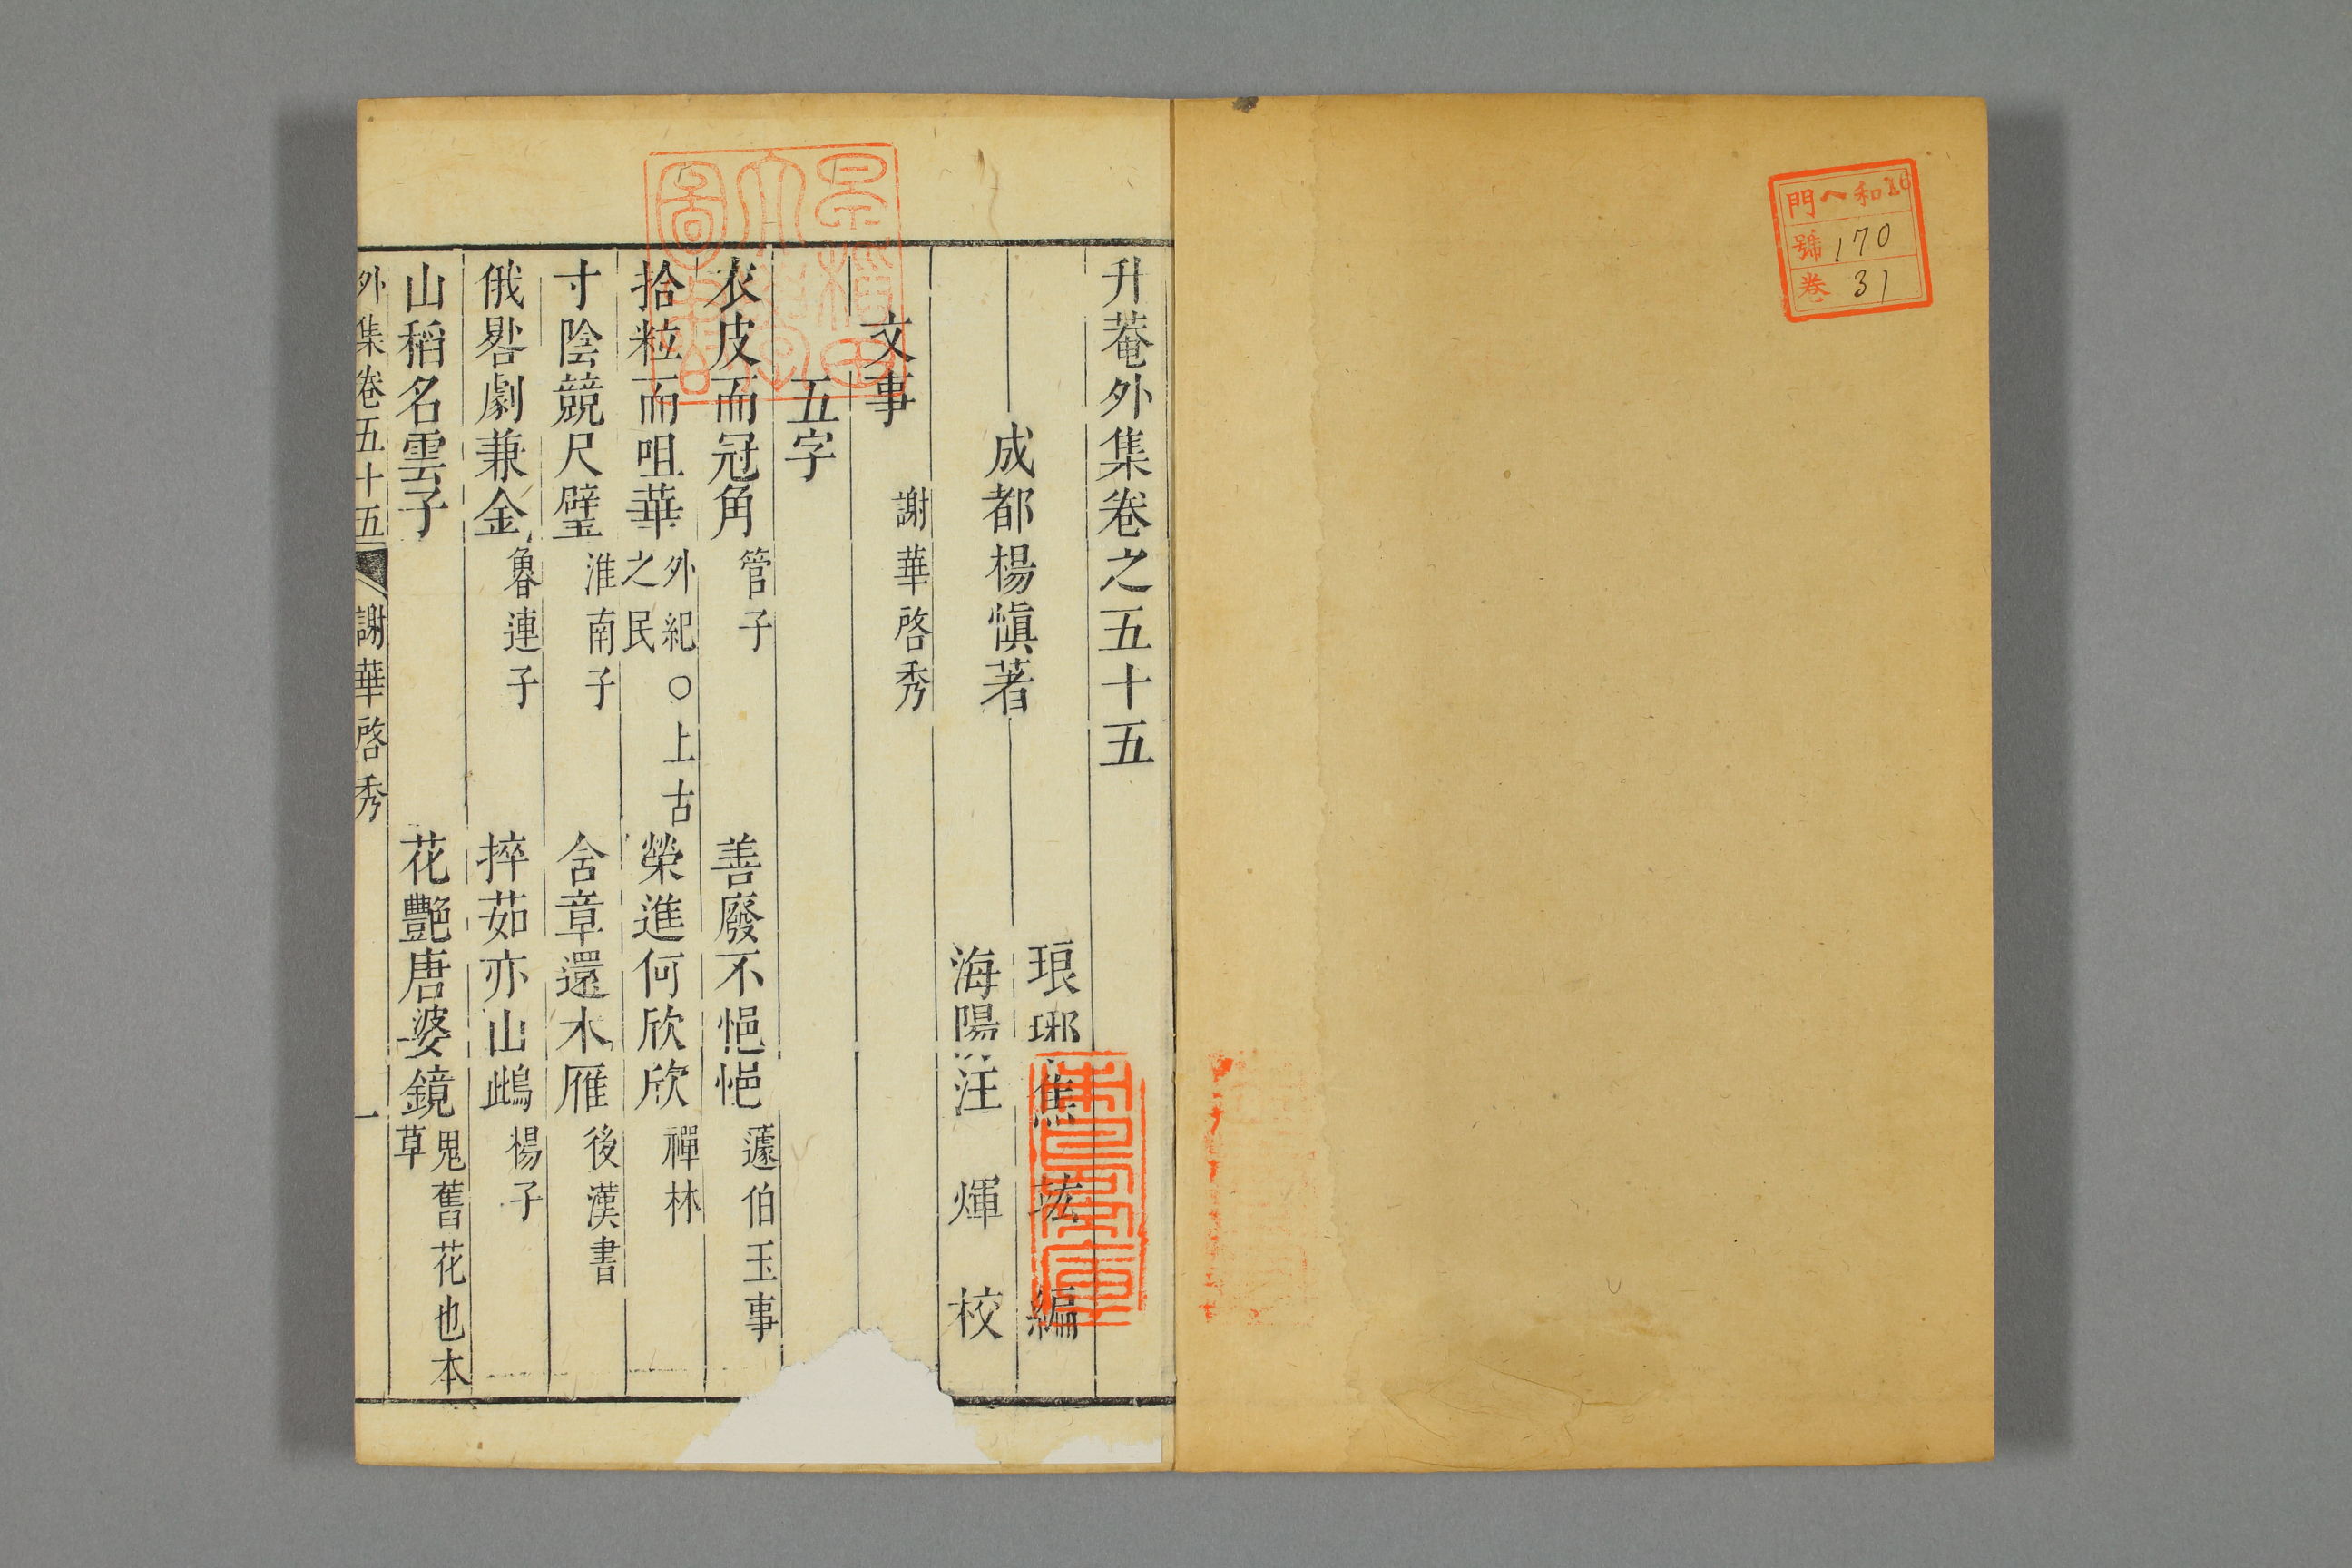 門 ヘ和16
號 170
卷 31
升菴外集卷之五十五
琅琊焦竑編
成都楊慎著
海陽汪煇校
文事 謝華啓秀
五字
衣皮而冠角 管子 善廢不悒悒 蘧伯玉事
拾粒而咀華 外紀○上古之民 榮進何欣欣 禪林
寸陰競尺璧 淮南子 含章還木雁 後漢書
俄晷劇兼金 魯連子 捽茹亦山鴟 楊子
山稻名雲子 花艷唐婆鏡 鬼舊花也本草
外集卷五十五 謝華啓秀 一